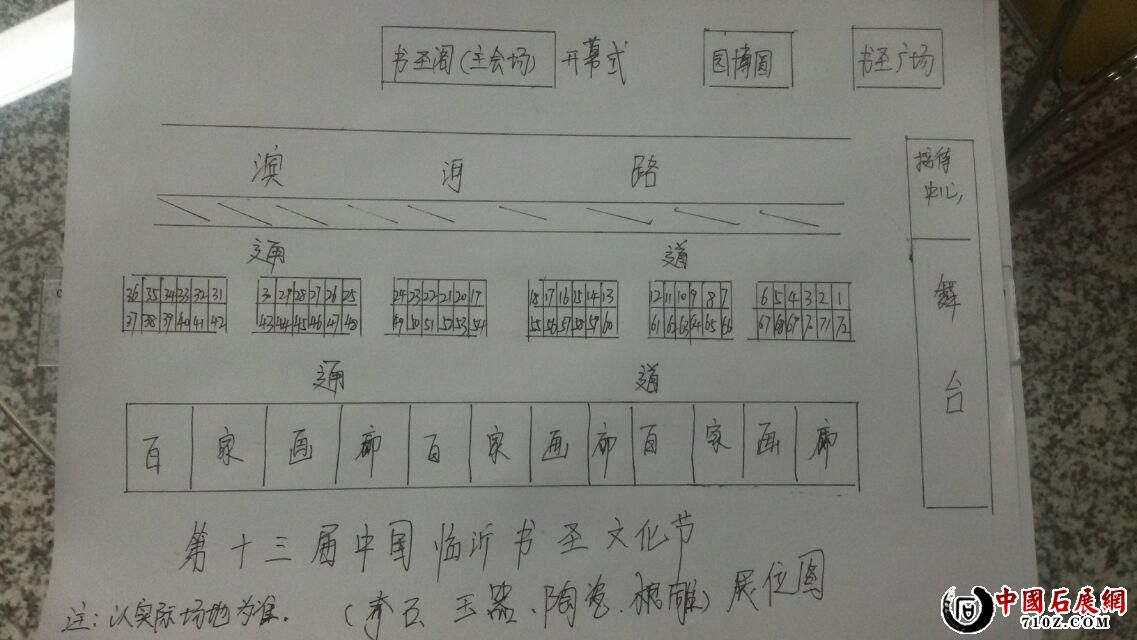 书圣阁(主会场) 开幕式 园博园 书圣广场
滨河路
接待
中心
通道
36 35 34 33 32 31 3 29 28 27 26 25 24 23 22 21 20 19 18 17 16 15 14 13 12 11 10 9 8 7 6 5 4 3 2 1
37 38 39 40 41 42 43 44 45 46 47 48 49 50 51 52 53 54 55 56 57 58 59 60 61 62 63 64 65 66 67 68 69 70 71 72
舞台
通道
百家画廊百家画廊百家画廊
第十三届中国临沂书圣文化节
注:以实际场地为准。 (奇石、玉器、陶瓷、根雕)展位图
中國石展網
710Z.COM